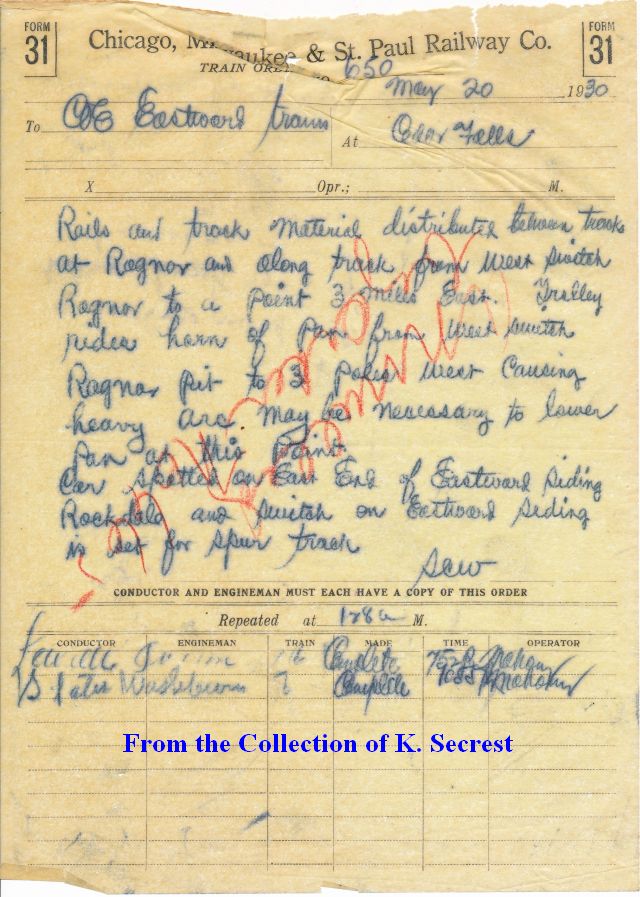 FORM 31
Chicago, Milwaukee & St. Paul Railway Co.
FORM 31
TRAIN ORDER NO. 650
May 20 1930
To C&E Eastward trains At Cedar Falls
X Opr.; M.
Rails and track material distributed between tracks
at Ragnar and along track from West Switch
Ragnar to a point 3 miles East. Trolley
rides horn of Pan from West Switch
Ragnar pit to 3 Poles West Causing
heavy arc may be necessary to lower
Pan at this point
Car spotted on East End of Eastward Siding
Rockdale and switch on Eastward Siding
is set for spur track
SCW
CONDUCTOR AND ENGINEMAN MUST EACH HAVE A COPY OF THIS ORDER
Repeated at M.
CONDUCTOR ENGINEMAN TRAIN MADE TIME OPERATOR
Complete
Washburn Complete
From the Collection of K. Secrest